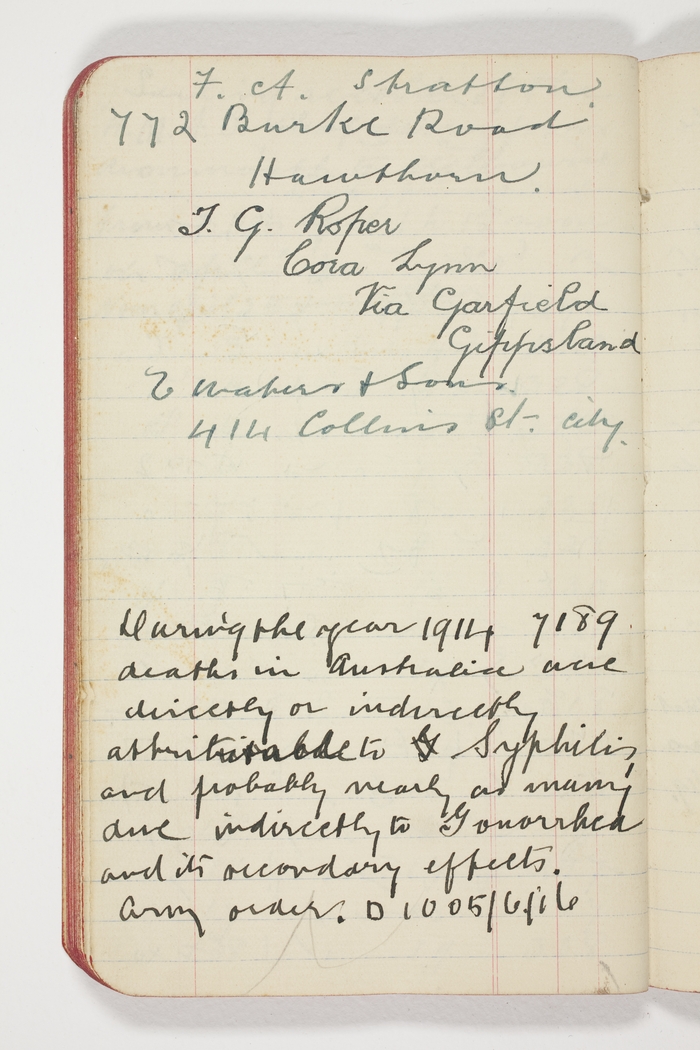 F. A. Stratton.
772 Burke Road
Hawthorn.
T. G. Roper
Cora Lynn
Via Garfield
Gippsland
E Waters & Sons.
414 Collins St. city.
During the year 1914 7189
deaths in Australia were
directly or indirectly
attributable to Syphilis,
and probably nearly as many
due indirectly to Gonorrhea
and its secondary effects.
Army order. D 1005/6/16